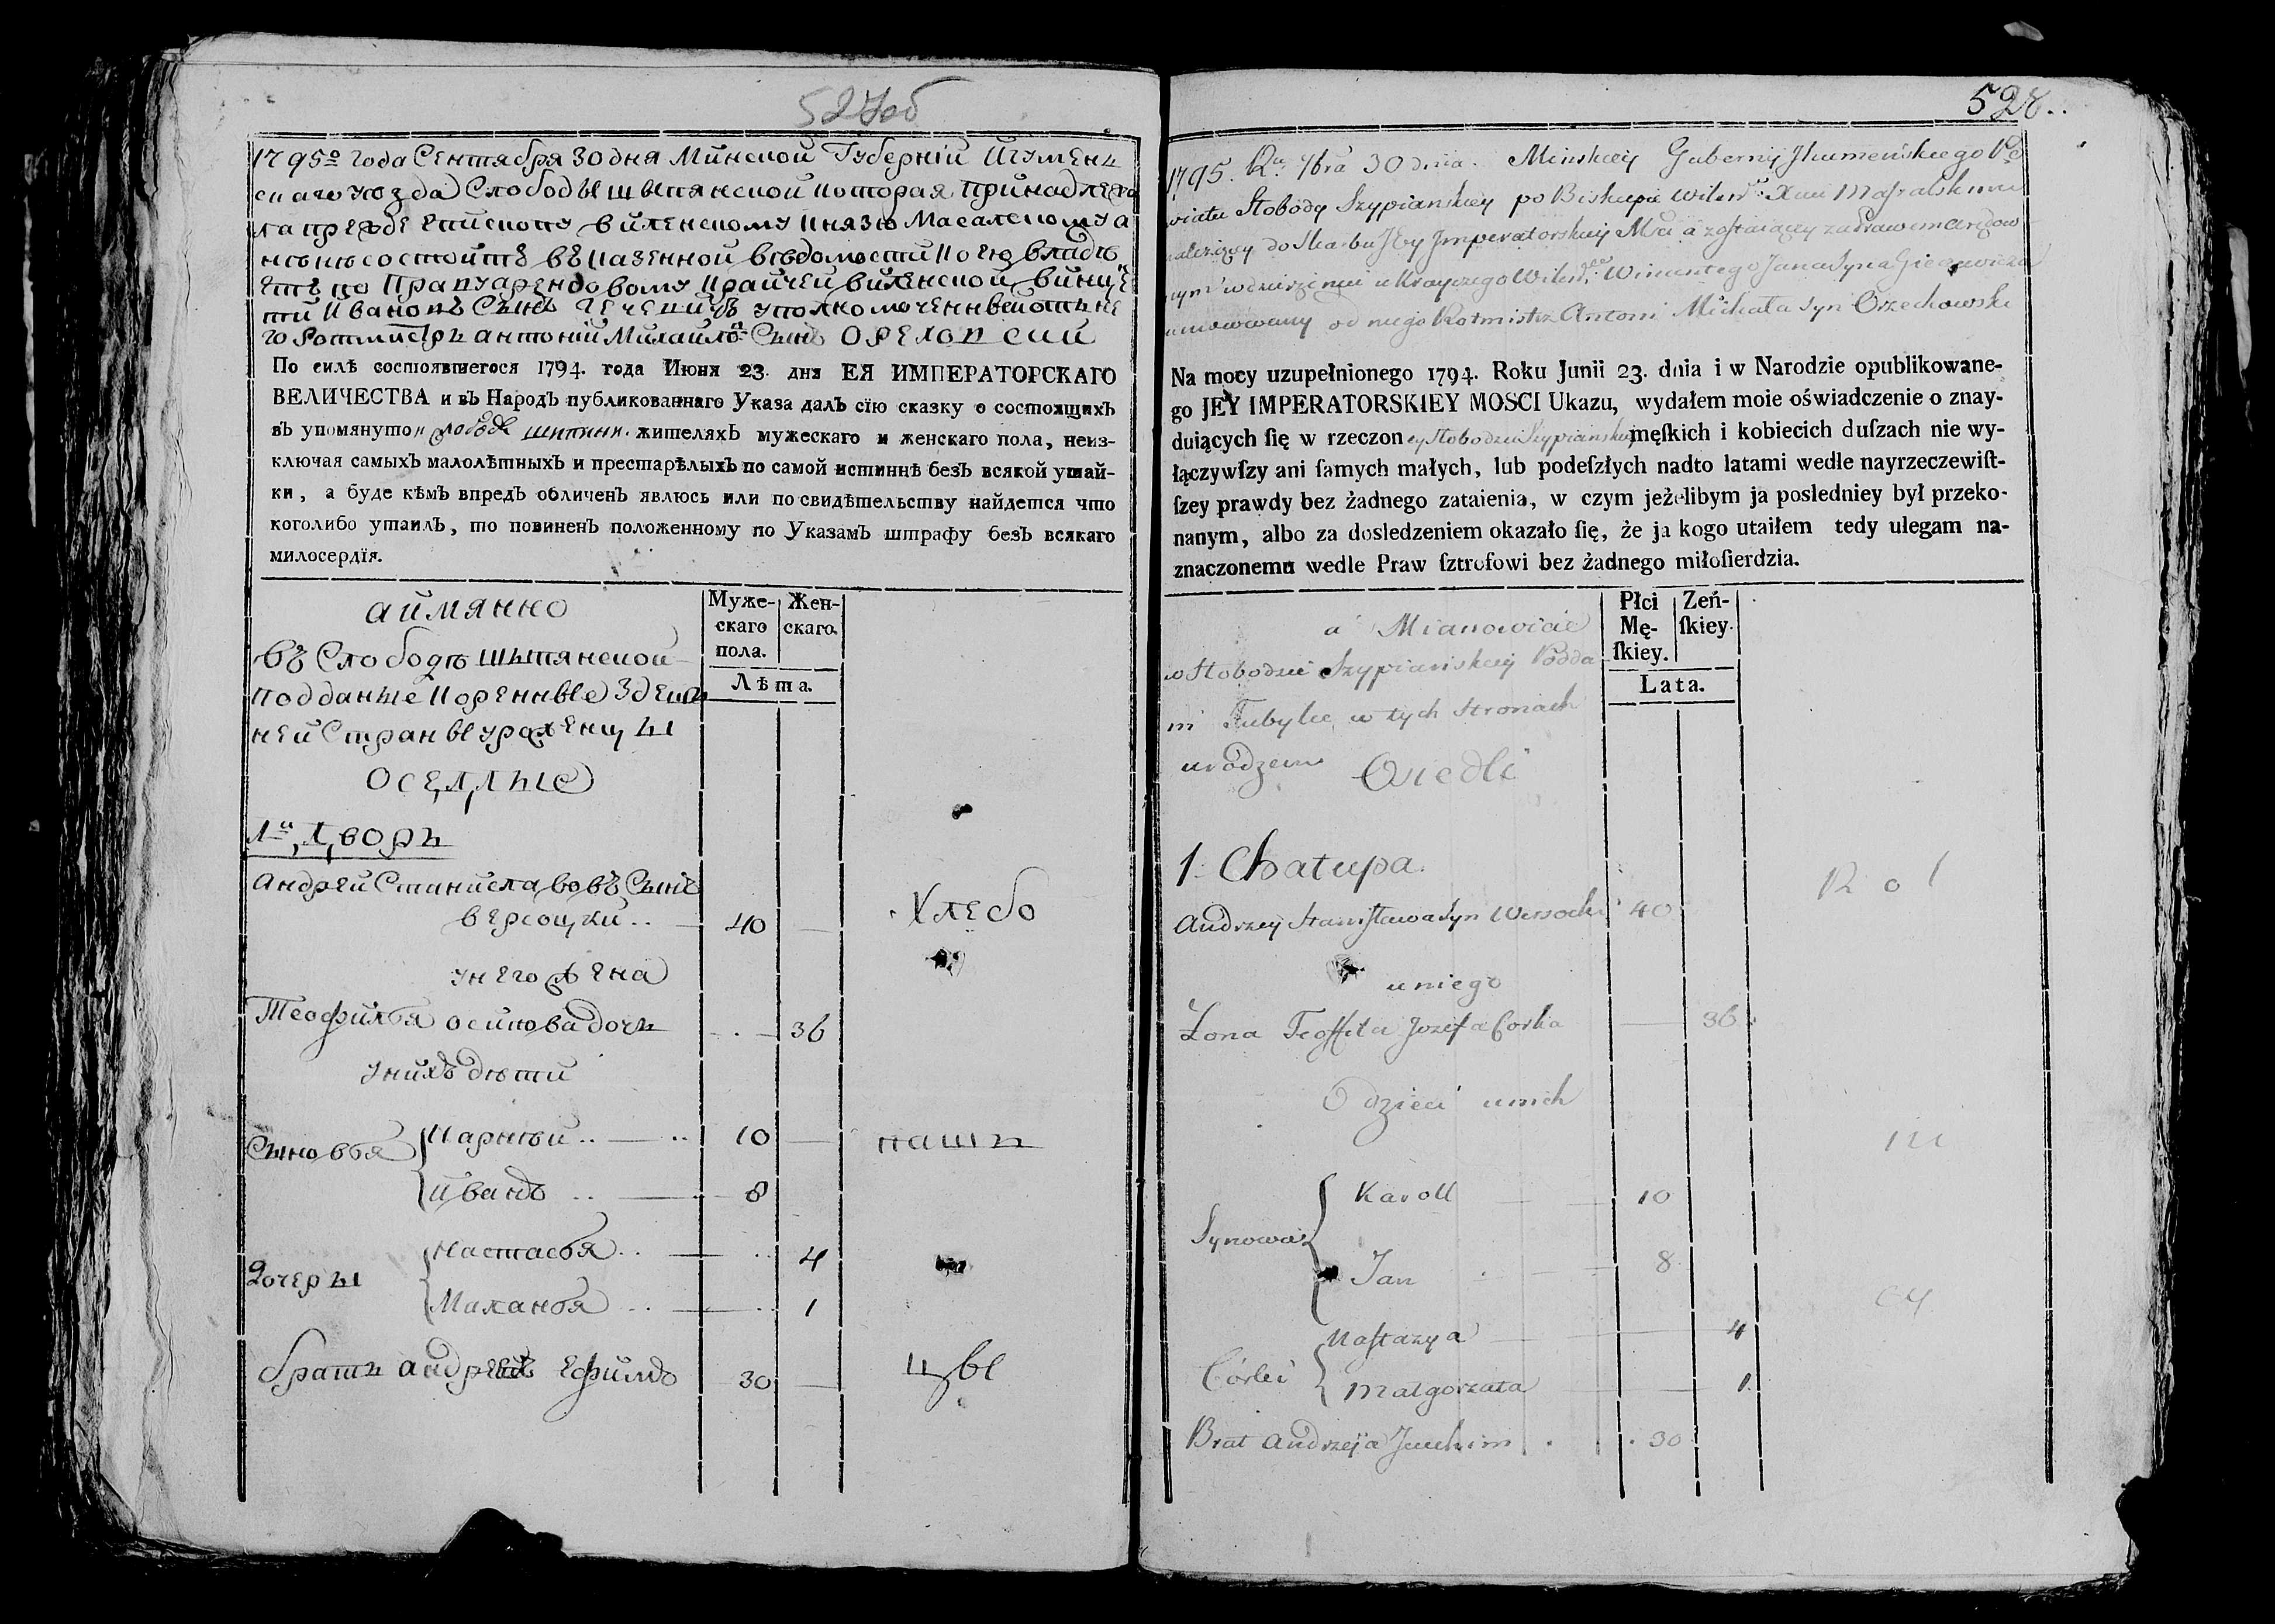 527об
1795º года Сентября 30 дня Минской Губерніи Игуменъ
скаго уѣзда Слободы шыпянской которая принадлежа
ла прежде епископу виленскому князю Масалскому а
нынѣ состоитъ въ казенной вѣдомости кою владѣ
етъ по праву арендовому крайчей виленской винце
тій Ивановъ Сынъ уполномоченный отъ не
го Ротмистръ антоній Михайлов Сынъ Орехонскій
По силѣ состоявшегося 1794. года Июня 23. дня ЕЯ ИМПЕРАТОРСКАГО
ВЕЛИЧЕСТВА и въ Народъ публикованнаго Указа далъ сїю сказку о состоящихъ
въ упомянутой слободѣ шипянн. жителяхъ мужескаго и женскаго пола, неиз-
ключая самыхъ малолѣтныхъ и престарѣлыхъ по самой истиннѣ безъ всякой утай-
ки, а буде кѣмъ впредъ обличенъ явлюсь или по свидѣтельству найдется что
коголибо утаилъ, то повиненъ положенному по Указамъ штрафу безъ всякаго
милосердїя.
аймянно
въ Слободѣ шыпянской
подданые коренные здеш
ней Страны уроженцы
Оселлые
Муже-
скаго
пола.
Жен-
скаго.
Лѣта.
1й дворъ
Андрей Станиславовъ Сынъ
версоцкий .. 40
унего жена
Теофилья осипова дочь 36
унихъ дѣти
Сыновья { Карнѣй .. 10
иванъ .. 8
Дочеры { Настасья .. 4
Маланья .. 1
братъ андрея Ефимъ 30
Хлебо
пашъ
цы
528.
1795. Ru 7bra 30 dnia. Minskiey Gubernij Jhumeńskiego Po
wiatu Słobody Szypianskiey po Biskupie Wileń: Xciu Massalskim
należący do Skarbu JEy Jmperatorskiey Mści a zostaiącey za Prawem aręDow
nym w dzierżeniu u Krayczego Wileń: Wincentego Jana Syna
umocowany od niego Rotmistrz Antoni Michała Syn Orzechowski
Na mocy uzupełnionego 1794. Roku Junii 23. dnia i w Narodzie opublikowane-
go JEY IMPERATORSKIEY MOSCI Ukazu, wydałem moie oświadczenie o znay-
duiących ſię w rzeczoney Słobodzie Szypianskiey męſkich i kobiecich duſzach nie wy-
łączywſzy ani ſamych małych, lub podeſzłych nadto latami wedle nayrzeczewiſt-
ſzey prawdy bez żadnego zataienia, w czym jeżelibym ja posledniey był przeko-
nanym, albo za dosledzeniem okazało ſię, że ja kogo utaiłem tedy ulegam na-
znaczonemu wedle Praw ſztrofowi bez żadnego miłoſierdzia.
a Mianowicie
w Słobodzie Szypianskiey Podda
ni Tubylce w tych Stronach
urodzeni Osiedli
Płci
Mę-
ſkiey.
Zeń-
ſkiey.
Lata.
1. Chałupa.
Andrzey Stanisława Syn Wersocki 40
u niego
Żona Teoffila Jozefa Corka 36
Dzieci unich
Synowie { Karoll 10
Jan 8
Córki { Nastazya 4
Małgorzata 1
Brat Andrzeja Jauchim 30
Rol
ni
cy